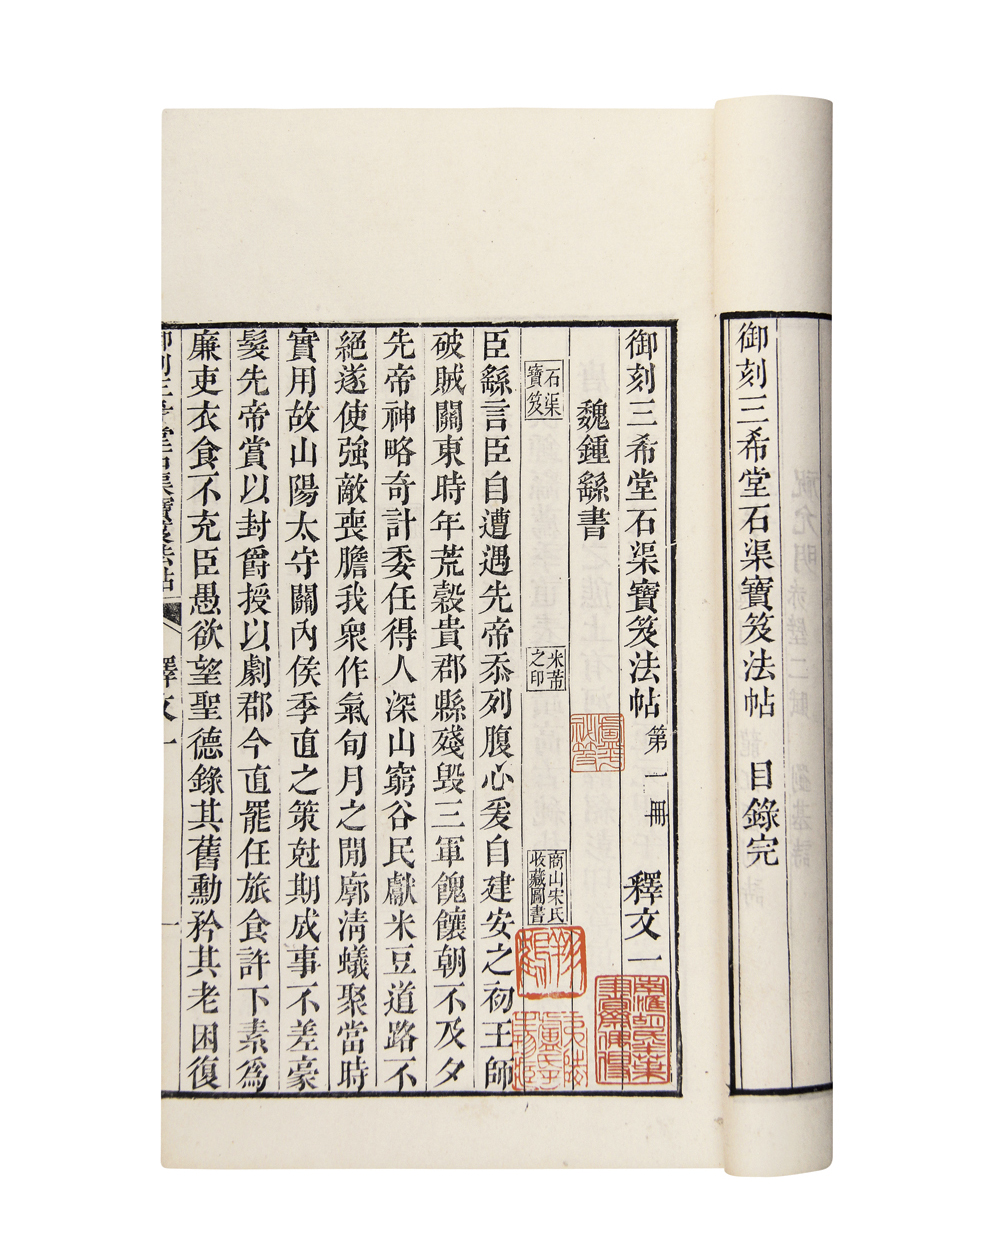 御刻三希堂石渠寶笈法帖 目錄完
御刻三希堂石渠寶笈法帖 第一冊 釋文一
魏鍾繇書
石渠寶笈
米芾之印
商山宋氏收藏圖書
臣繇言臣自遭遇先帝忝列腹心爰自建安之初王師
破賊關東時年荒穀貴郡縣殘毀三軍餽饟朝不及夕
先帝神略奇計委任得人深山窮谷民獻米豆道路不
絕遂使強敵喪膽我衆作氣旬月之閒廓清蟻聚當時
實用故山陽太守關內侯季直之策尅期成事不差豪
髮先帝賞以封爵授以劇郡今直罷任旅食許下素爲
廉吏衣食不充臣愚欲望聖德錄其舊勳矜其老困復
御刻三希堂石渠寶笈法帖 釋文一 一